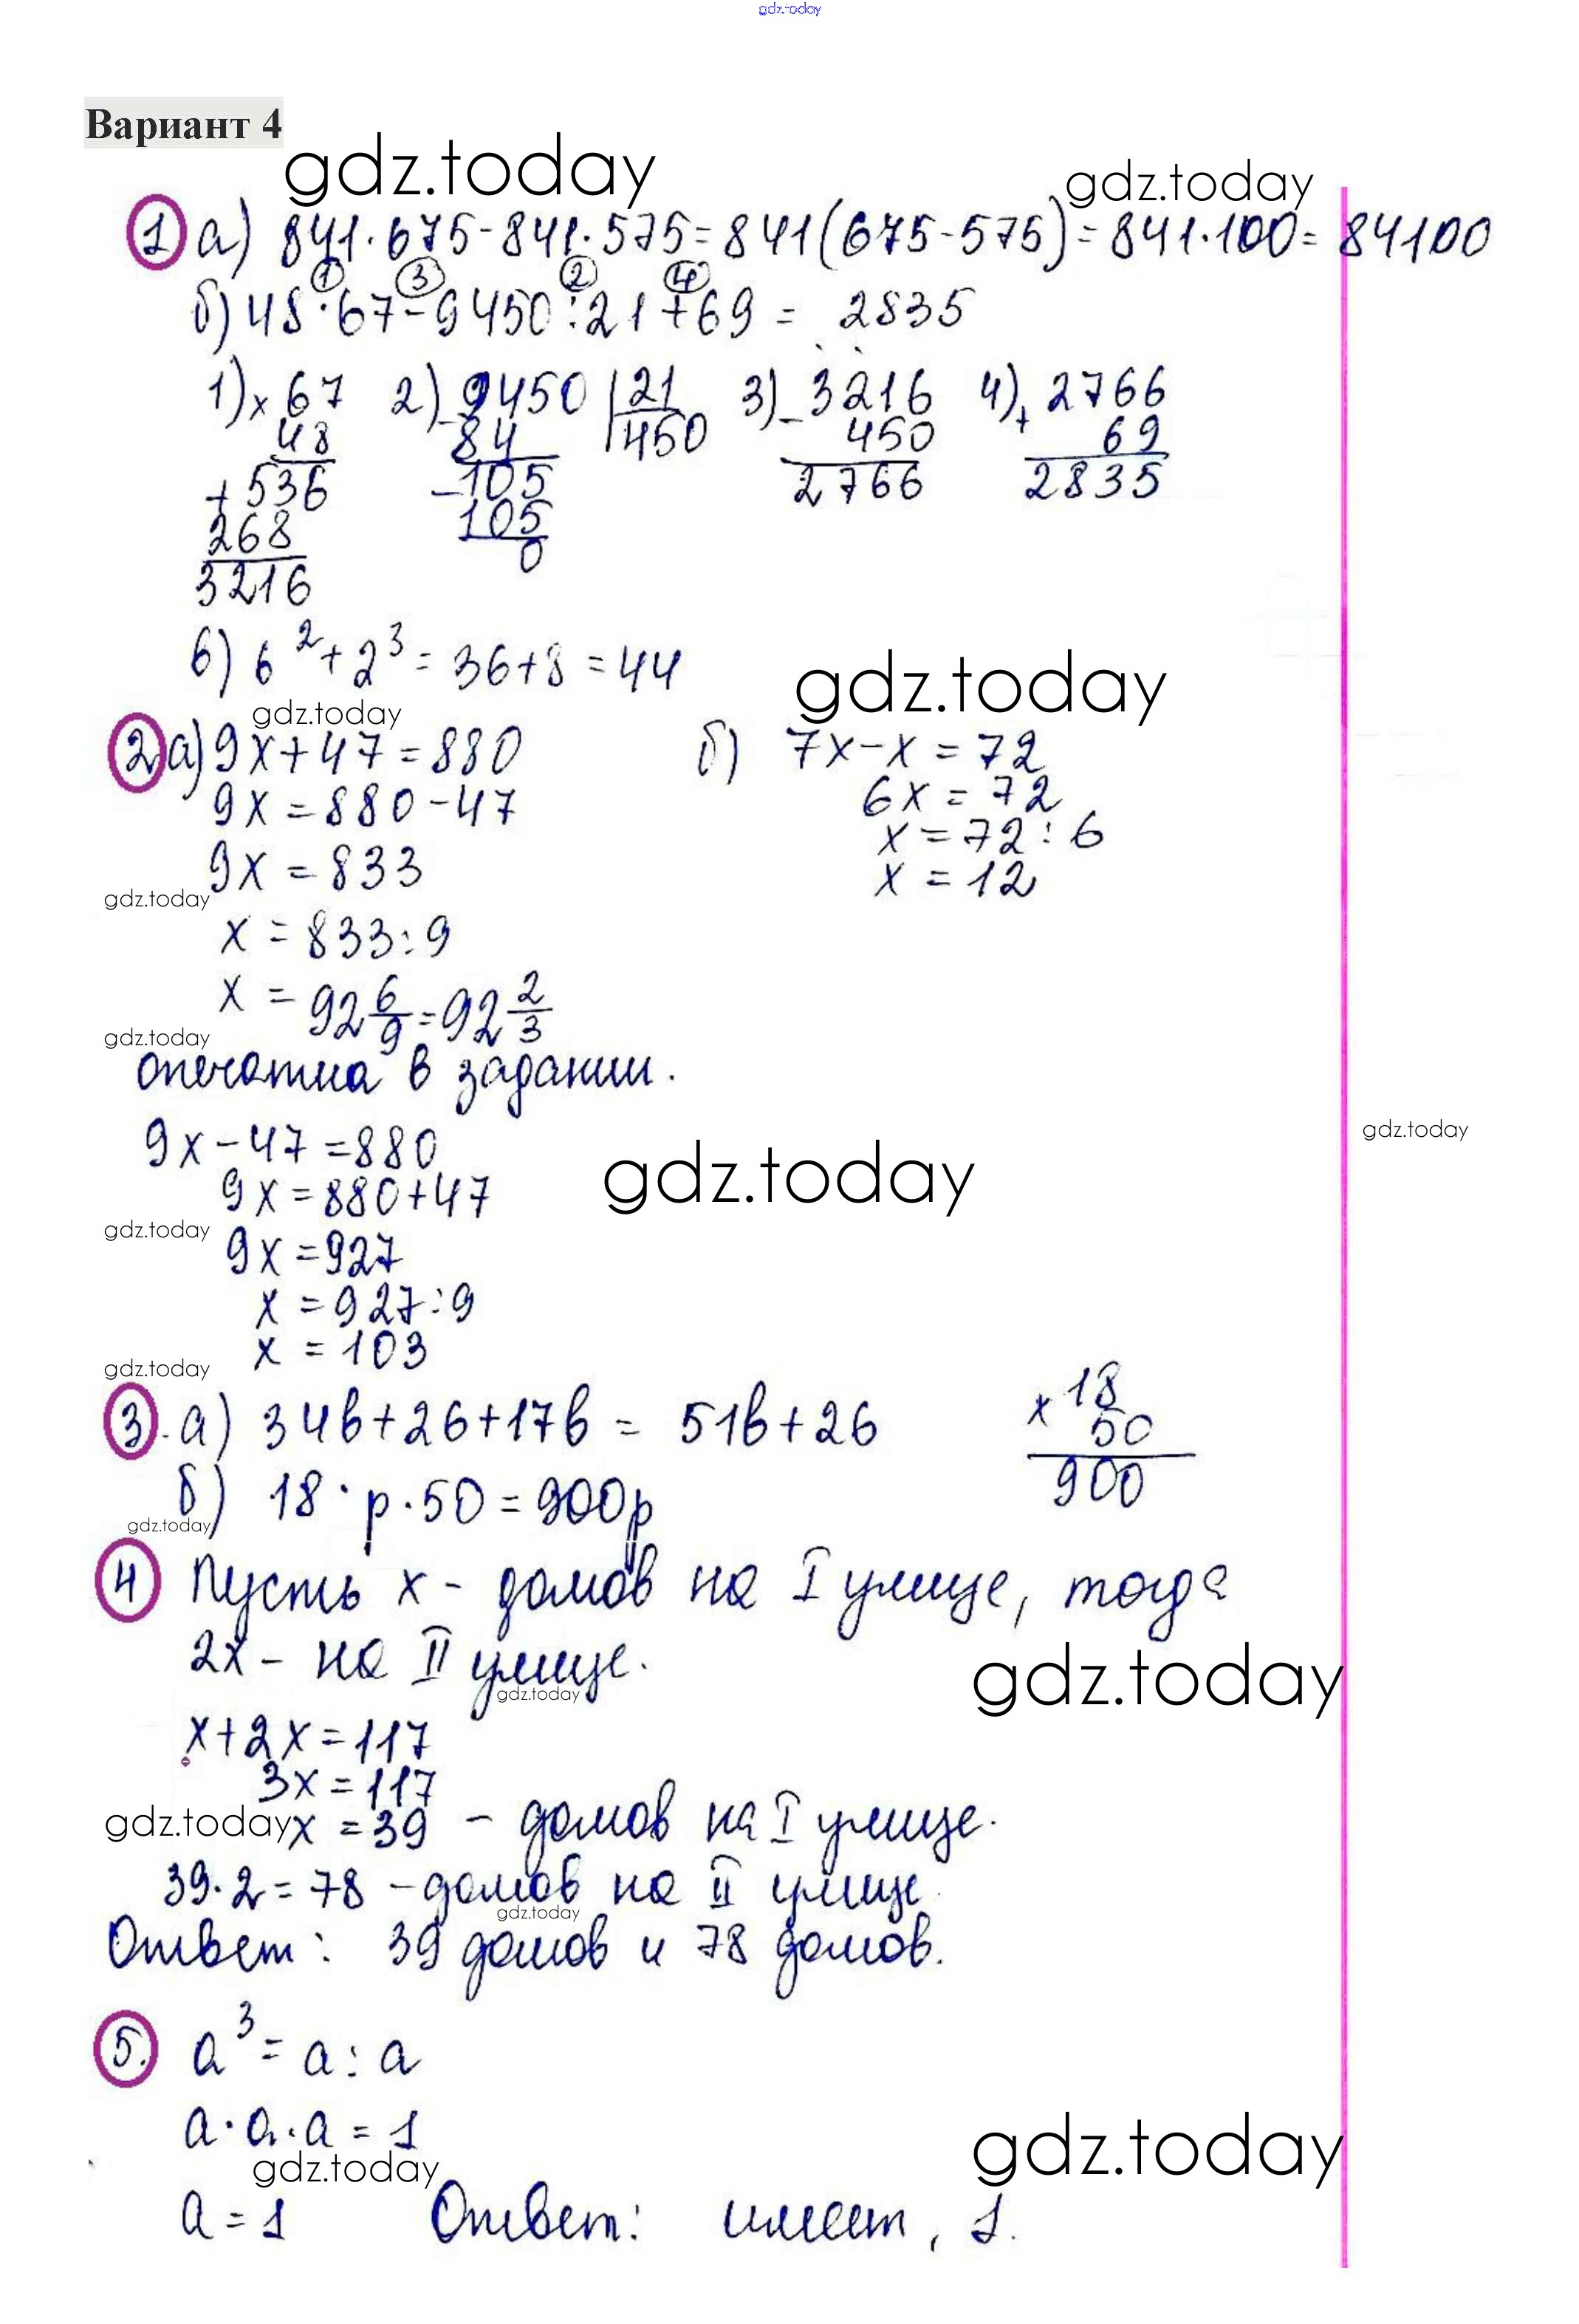 gdz.today
Вариант 4
gdz.today
gdz.today
1 а) 841·675-841·575=841(675-575)=841·100=84100
1 3 2 4
б) 48·67-9450:21+69 = 2835
1) × 67 2) - 9450 | 21 3) - 3216 4) + 2766
48 84 450 450 69
+ 536 - 105 2766 2835
268 105
3216 0
в) 6² + 2³ = 36+8 = 44
gdz.today
gdz.today
2 а) 9x+47=880 б) 7x-x=72
9x=880-47 6x=72
9x=833 x=72:6
gdz.today x=12
x=833:9
x=92 6/9=92 2/3
gdz.today
опечатка в задании.
9x-47=880
gdz.today
gdz.today
9x=880+47
gdz.today
9x=927
x=927:9
x=103
gdz.today
3. а) 34в+26+17в = 51в+26 × 18
50
900
б) 18·p·50=900p
gdz.today
4 Пусть x - домов на I улице, тогда
2x - на II улице.
gdz.today
gdz.today
x+2x=117
3x=117
gdz.today x=39 - домов на I улице.
39·2=78 - домов на II улице
gdz.today
Ответ: 39 домов и 78 домов.
5. a³=a:a
a·a·a=1
gdz.today
gdz.today
a=1 Ответ: имеет, 1.